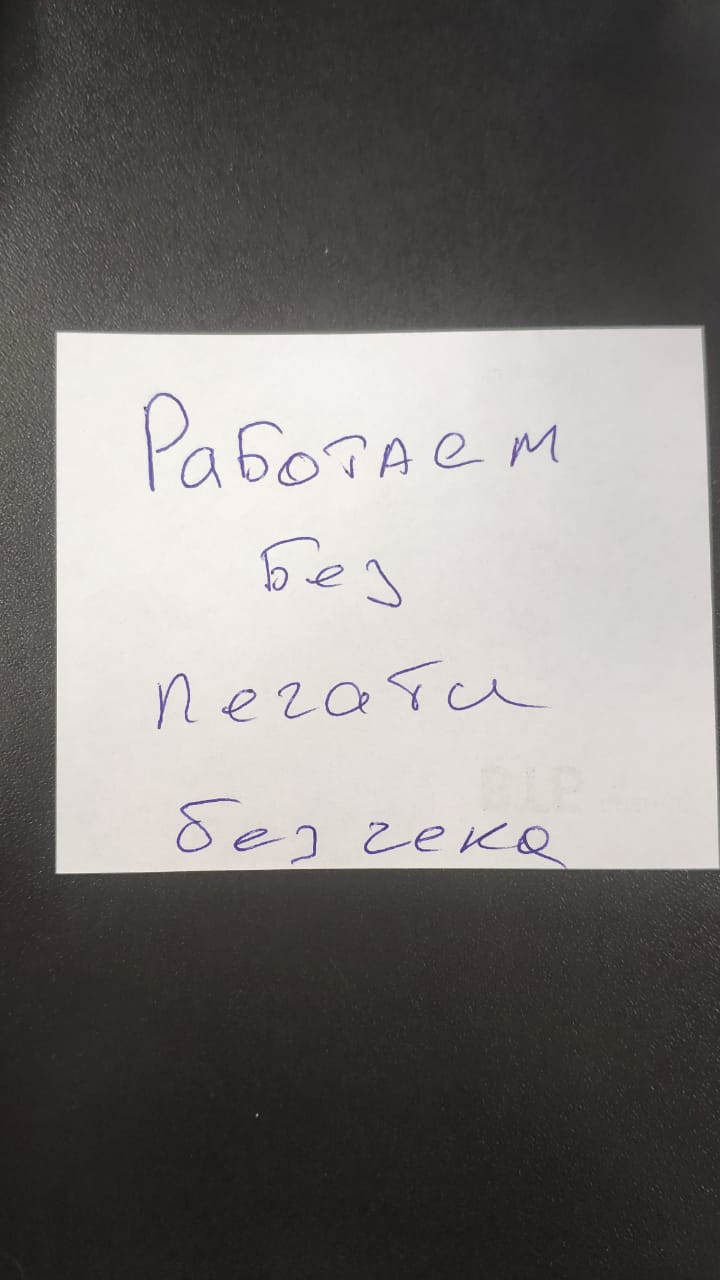 Работаем
без
печати
без чека